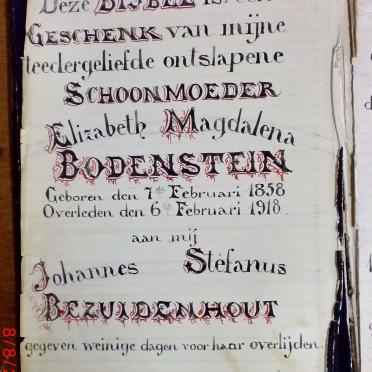 Deze BIJBEL is een
GESCHENK van mijne
teedergeliefde ontslapene
SCHOONMOEDER
Elizabeth Magdalena
BODENSTEIN
Geboren den 7de Februari 1838
Overleden den 6de Februari 1918.
aan mij
Johannes Stefanus
BEZUIDENHOUT
gegeven weinige dagen voor haar overlijden.